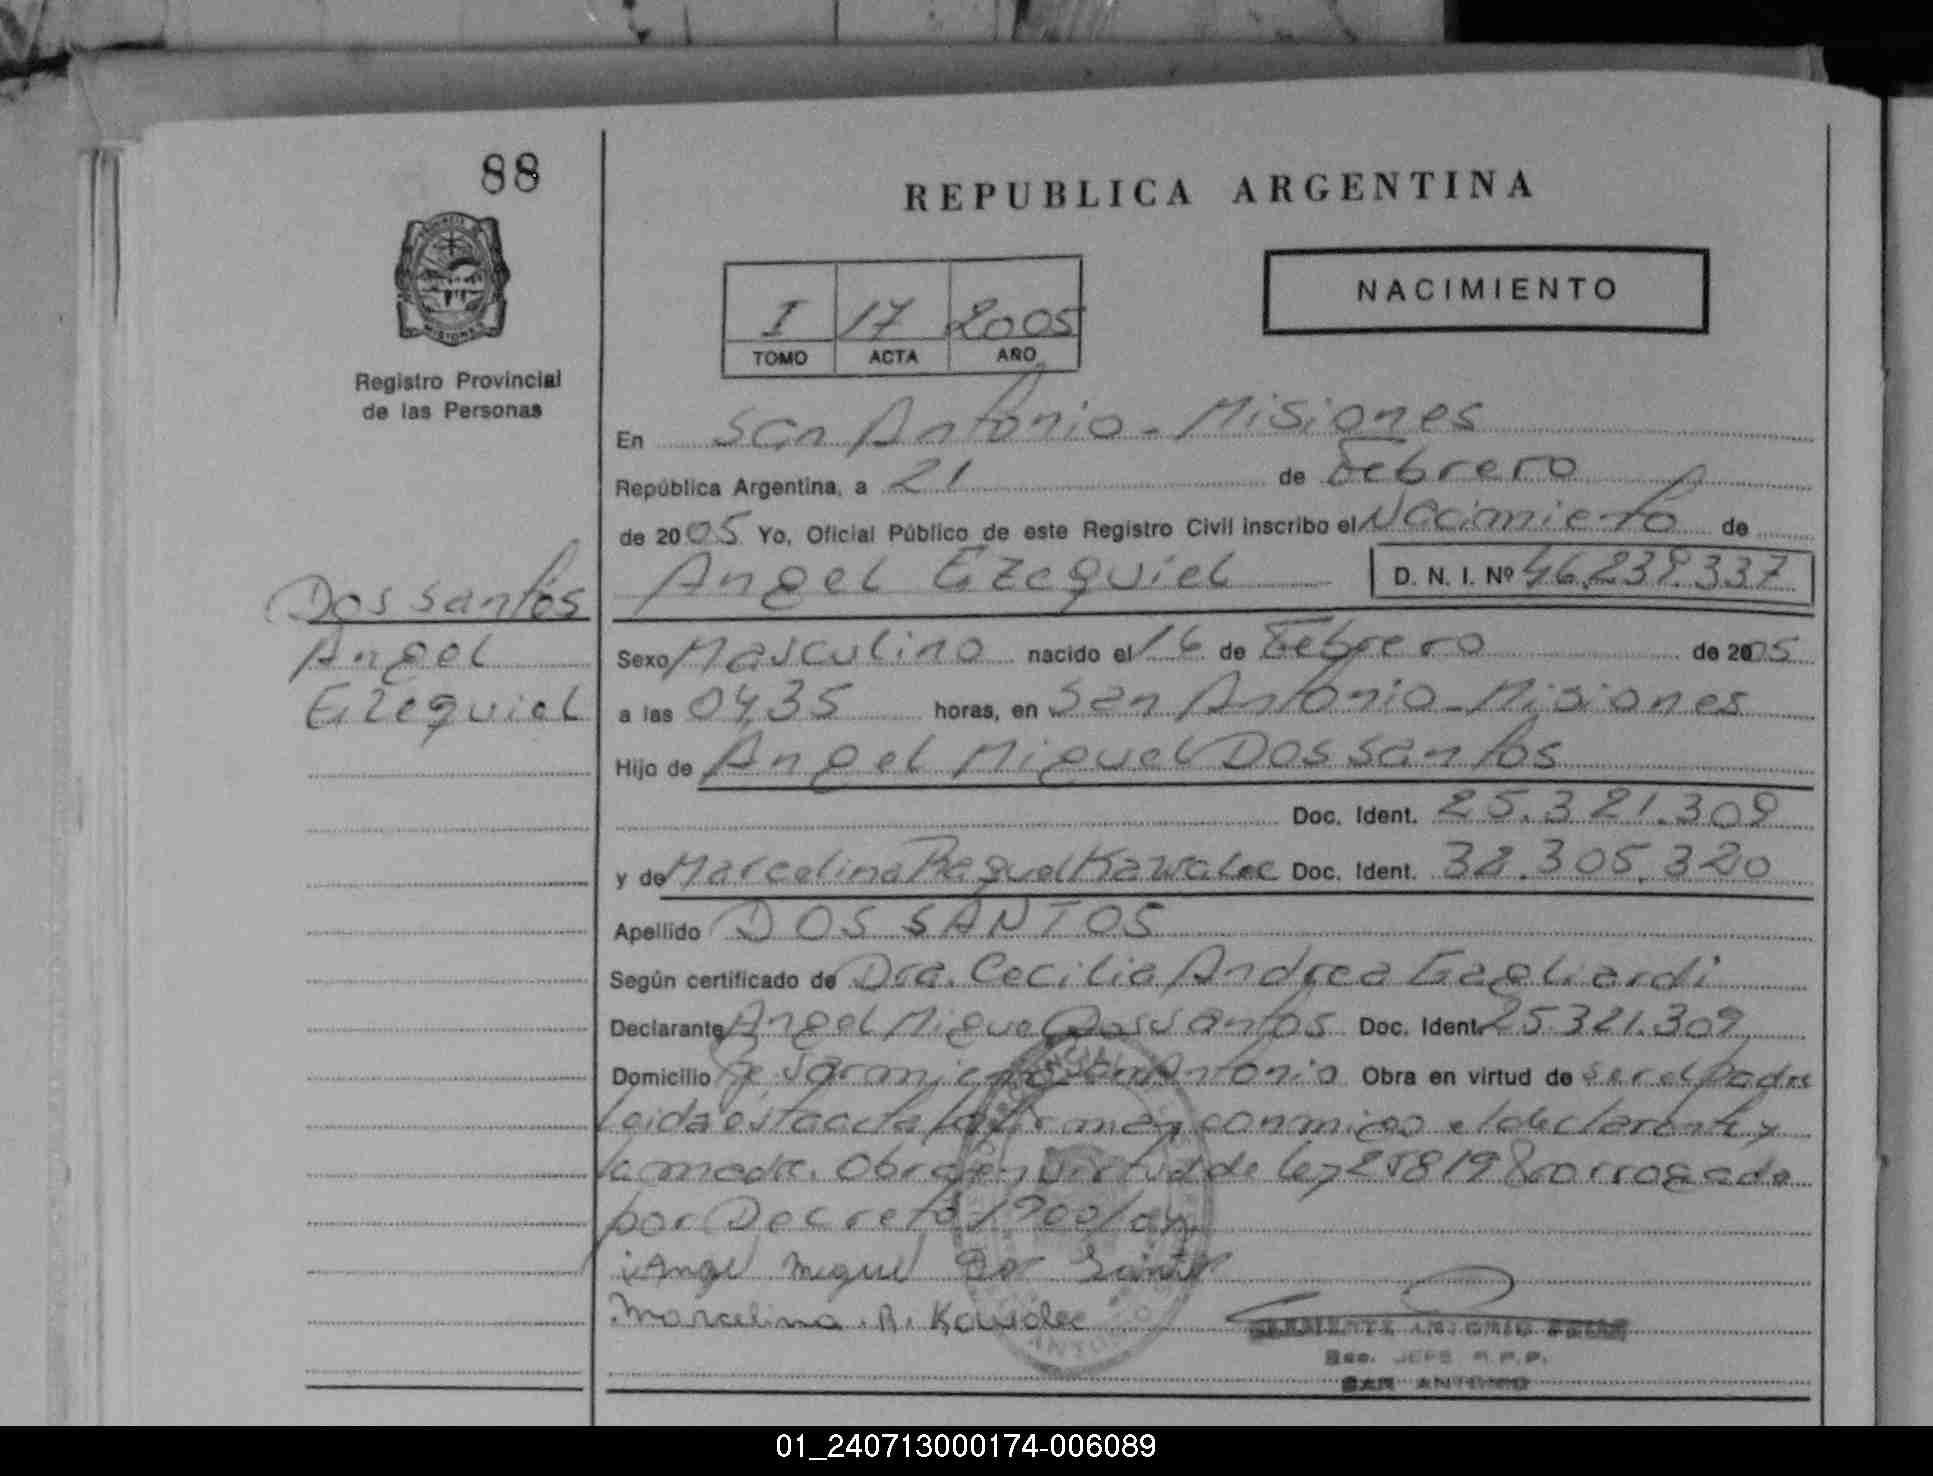 88
REPUBLICA ARGENTINA
NACIMIENTO
I 17 2005
TOMO ACTA AÑO
Registro Provincial
de las Personas
En San Antonio - Misiones
República Argentina, a 21 de Febrero
de 2005 Yo, Oficial Público de este Registro Civil inscribo el Nacimiento de
Angel Ezequiel D. N. I. Nº 46.238.337
Dos santos
Angel
Ezequiel
Sexo Masculino nacido el 16 de Febrero de 2005
a las 04,35 horas, en San Antonio - Misiones
Hijo de Angel Miguel Dos santos
Doc. Ident. 25.321.309
y de Marcelina Raquel Kawalec Doc. Ident. 32.305.320
Apellido DOS SANTOS
Según certificado de Dra. Cecilia Andrea Gagliardi
Declarante Angel Miguel Dos santos Doc. Ident. 25.321.309
Domicilio Sarmiento San Antonio Obra en virtud de ser el padre
Leida esta acta la firman conmigo el declarante y
la madre. Obra en virtud de ley 25819 Prorrogada
por Decreto 1900/04
Angel Miguel Dos Santos
Marcelina. R. Kawalec
ANTONIO
JEFE R.P.P.
SAN ANTONIO
01_240713000174-006089